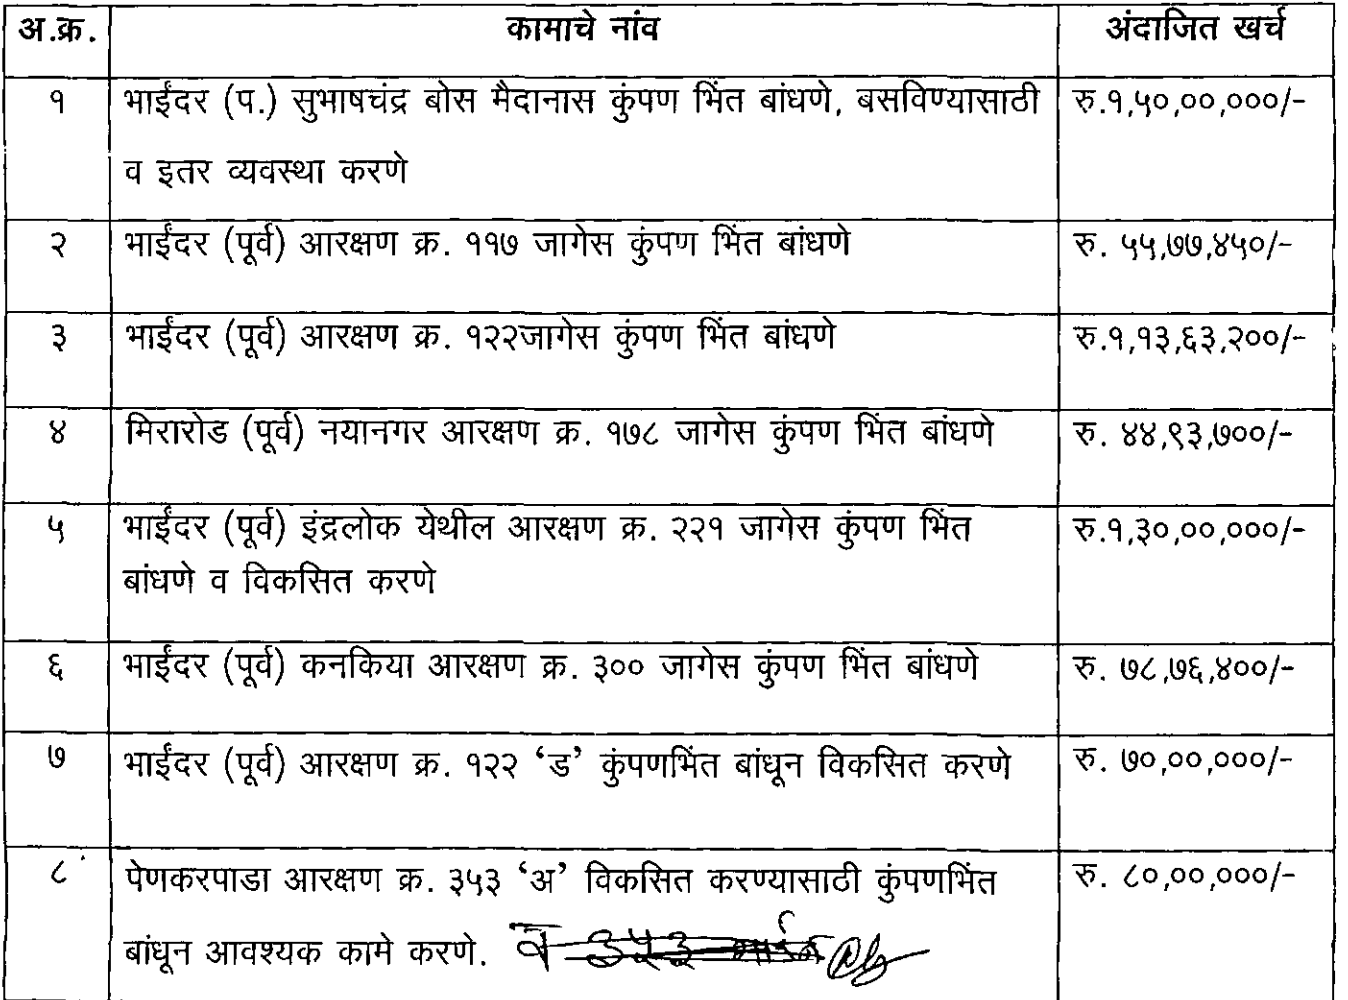 अ.क्र. कामाचे नांव अंदाजित खर्च
१ भाईंदर (प.) सुभाषचंद्र बोस मैदानास कुंपण भिंत बांधणे, बसविण्यासाठी रु.१,५०,००,०००/-
व इतर व्यवस्था करणे
२ भाईंदर (पूर्व) आरक्षण क्र. ११७ जागेस कुंपण भिंत बांधणे रु. ५५,७७,४५०/-
३ भाईंदर (पूर्व) आरक्षण क्र. १२२जागेस कुंपण भिंत बांधणे रु.१,१३,६३,२००/-
४ मिरारोड (पूर्व) नयानगर आरक्षण क्र. १७८ जागेस कुंपण भिंत बांधणे रु. ४४,९३,७००/-
५ भाईंदर (पूर्व) इंद्रलोक येथील आरक्षण क्र. २२१ जागेस कुंपण भिंत रु.१,३०,००,०००/-
बांधणे व विकसित करणे
६ भाईंदर (पूर्व) कनकिया आरक्षण क्र. ३०० जागेस कुंपण भिंत बांधणे रु. ७८,७६,४००/-
७ भाईंदर (पूर्व) आरक्षण क्र. १२२ ‘ड’ कुंपणभिंत बांधून विकसित करणे रु. ७०,००,०००/-
८ पेणकरपाडा आरक्षण क्र. ३५३ ‘अ’ विकसित करण्यासाठी कुंपणभिंत रु. ८०,००,०००/-
बांधून आवश्यक कामे करणे. व ३५३